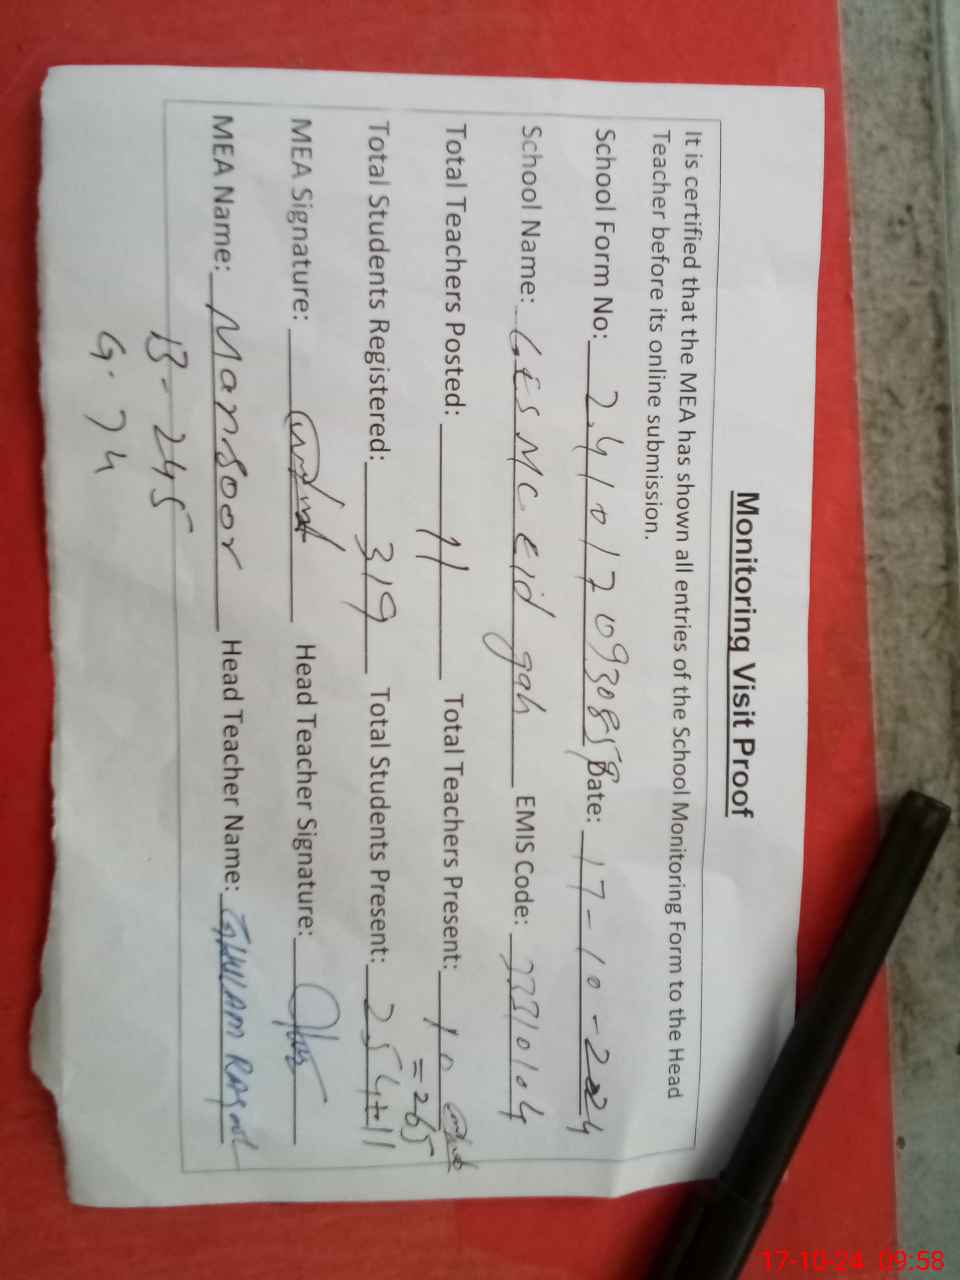 Monitoring Visit Proof
It is certified that the MEA has shown all entries of the School Monitoring Form to the Head
Teacher before its online submission.
School Form No: 2410170930858 Date: 17-10-2024
School Name: GES MC Eid gah EMIS Code: 33310104
Total Teachers Posted: 11 Total Teachers Present: 10
Total Students Registered: 319 Total Students Present: 254+11 = 265
MEA Signature: Head Teacher Signature:
MEA Name: Mansoor Head Teacher Name: GHULAM RASOOL
B- 245
G. 74
17-10-24 09:58